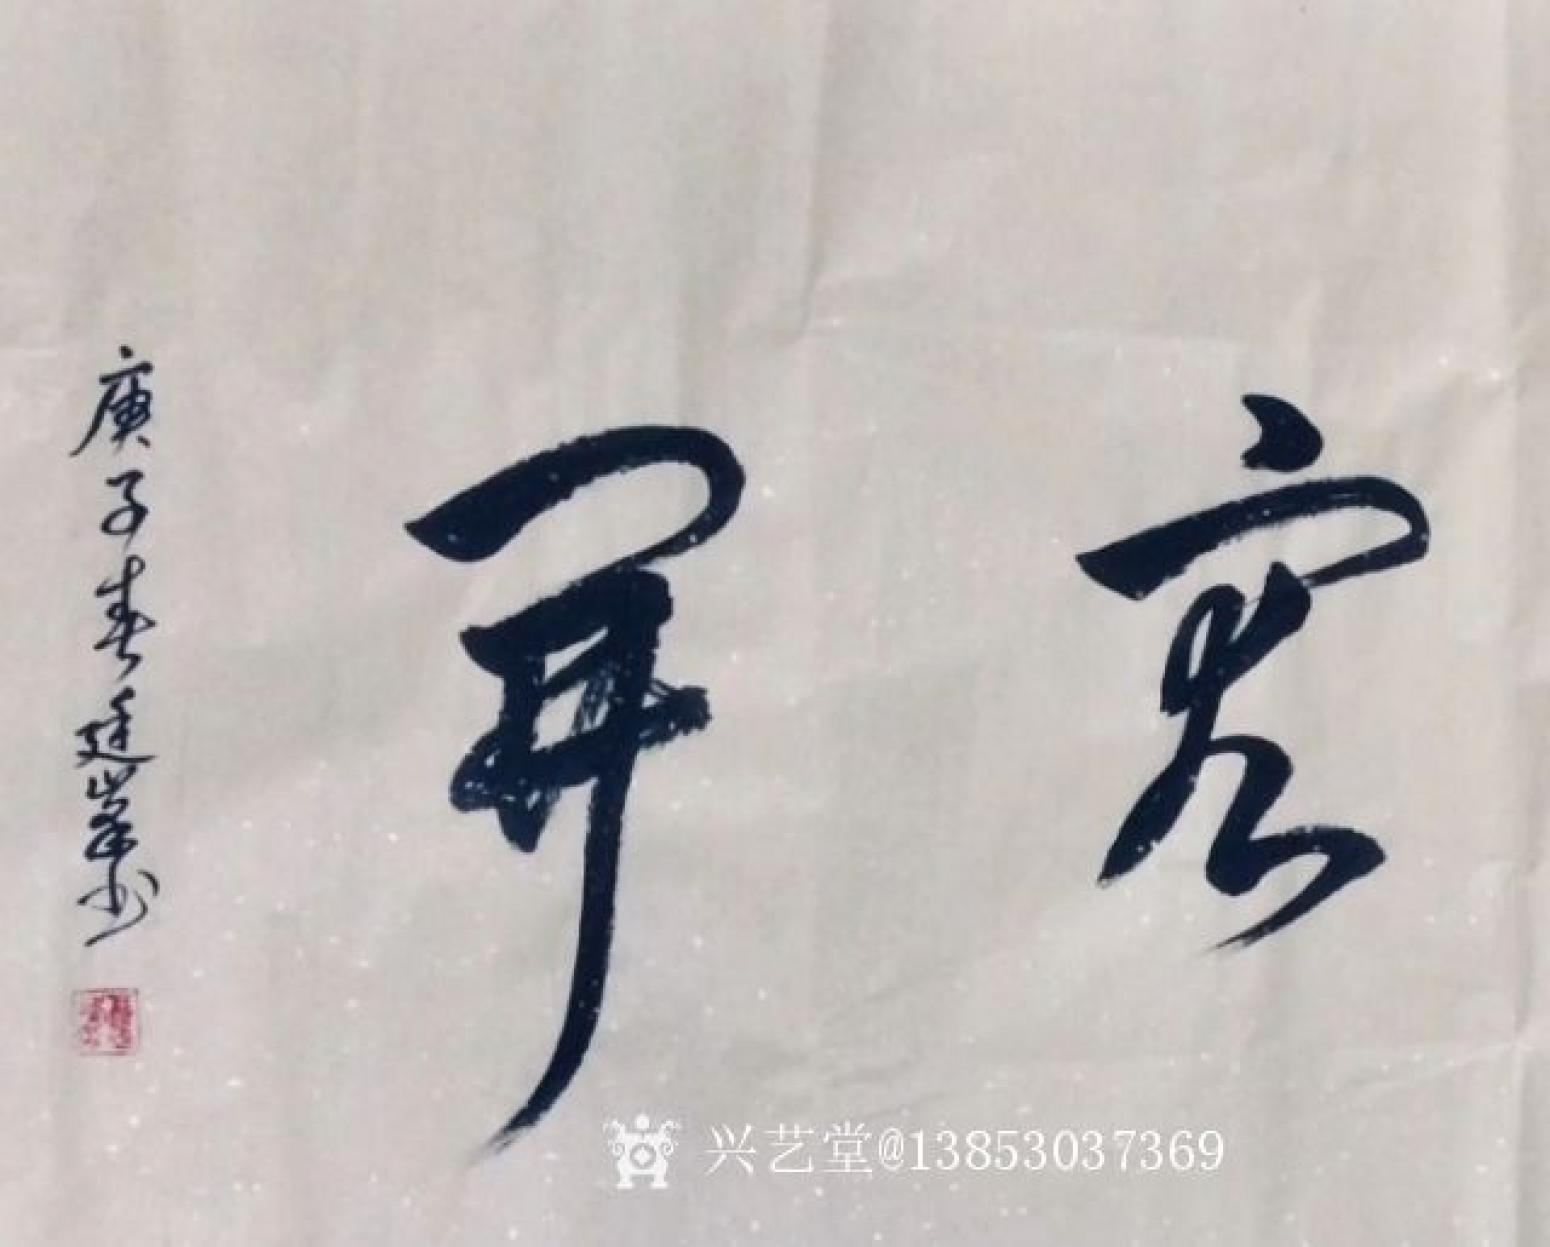 容開
庚子春廷峯书
兴艺堂@13853037369